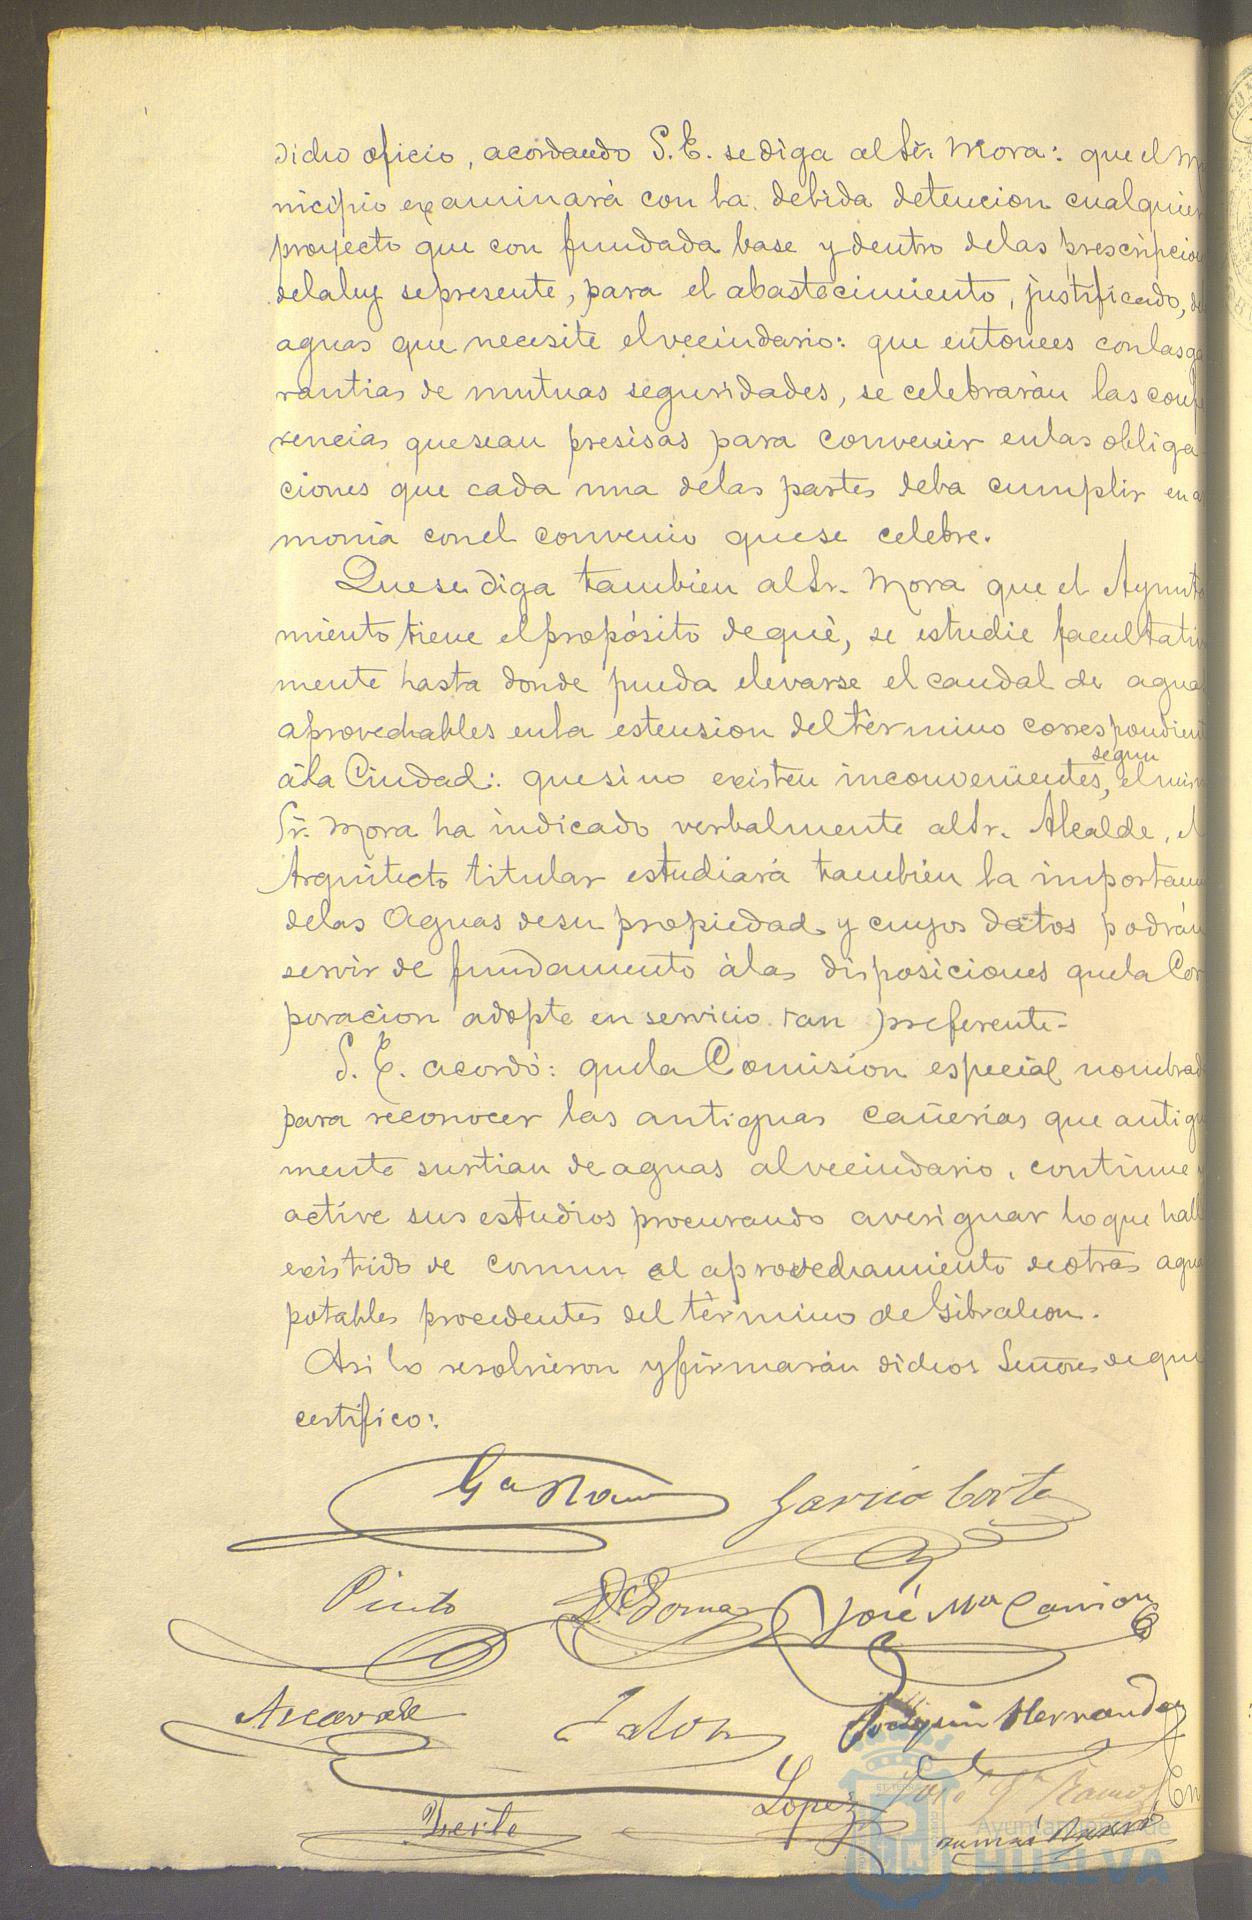 dicho oficio, acordando S.E. se diga al Sr. Mora: que el Mu
nicipio examinará con la debida detencion cualquier
proyecto que con fundada base y dentro de las prescripcion
de la ley se presente, para el abastecimiento, justificado, de
aguas que necesite el vecindario: que entonces con las ga
rantias de mutuas seguridades, se celebrarán las confe
rencias que sean presisas para convenir en las obliga
ciones que cada una de las partes deba cumplir en a
monia con el convenio que se celebre.
Que se diga tambien al Sr. Mora que el Ayunta
miento tiene el propósito de qué, se estudie facultativ
mente hasta donde pueda elevarse el caudal de agua
aprovechables en la estension del término correspondient
á la Ciudad: que si no existen inconvenientes, segun el mism
Sr. Mora ha indicado verbalmente al Sr. Alcalde, el
Arquitecto titular estudiará tambien la importan
de las Aguas de su propiedad y cuyos datos podrán
servir de fundamento á las disposiciones que la Cor
poracion adopte en servicio tan preferente-
S. E. acordó: que la Comision especial nombrad
para reconocer las antiguas cañerías que antigu
mente surtian de aguas al vecindario, continue
active sus estudios procurando averiguar lo que hall
existido de comun al aprovechamiento de otras agua
potables procedentes del término de Gibraleon.
Asi lo resolvieron y firmarán dichos Señores de que
certifico:
Gª Ram García Cortes
Pinto José Mª Carrion
Hernandez
Lopez José Gª Ramos
Ayuntamiento de
HUELVA